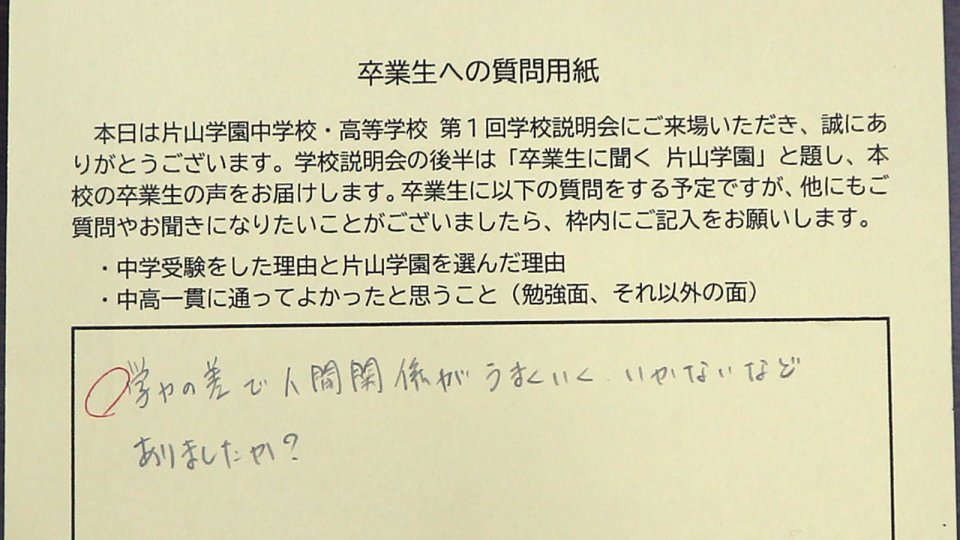 卒業生への質問用紙
本日は片山学園中学校・高等学校 第1回学校説明会にご来場いただき、誠にあ
りがとうございます。学校説明会の後半は「卒業生に聞く 片山学園」と題し、本
校の卒業生の声をお届けします。卒業生に以下の質問をする予定ですが、他にもご
質問やお聞きになりたいことがございましたら、枠内にご記入をお願いします。
・中学受験をした理由と片山学園を選んだ理由
・中高一貫に通ってよかったと思うこと(勉強面、それ以外の面)
学力の差で人間関係がうまくいく いかないなど
ありましたか?